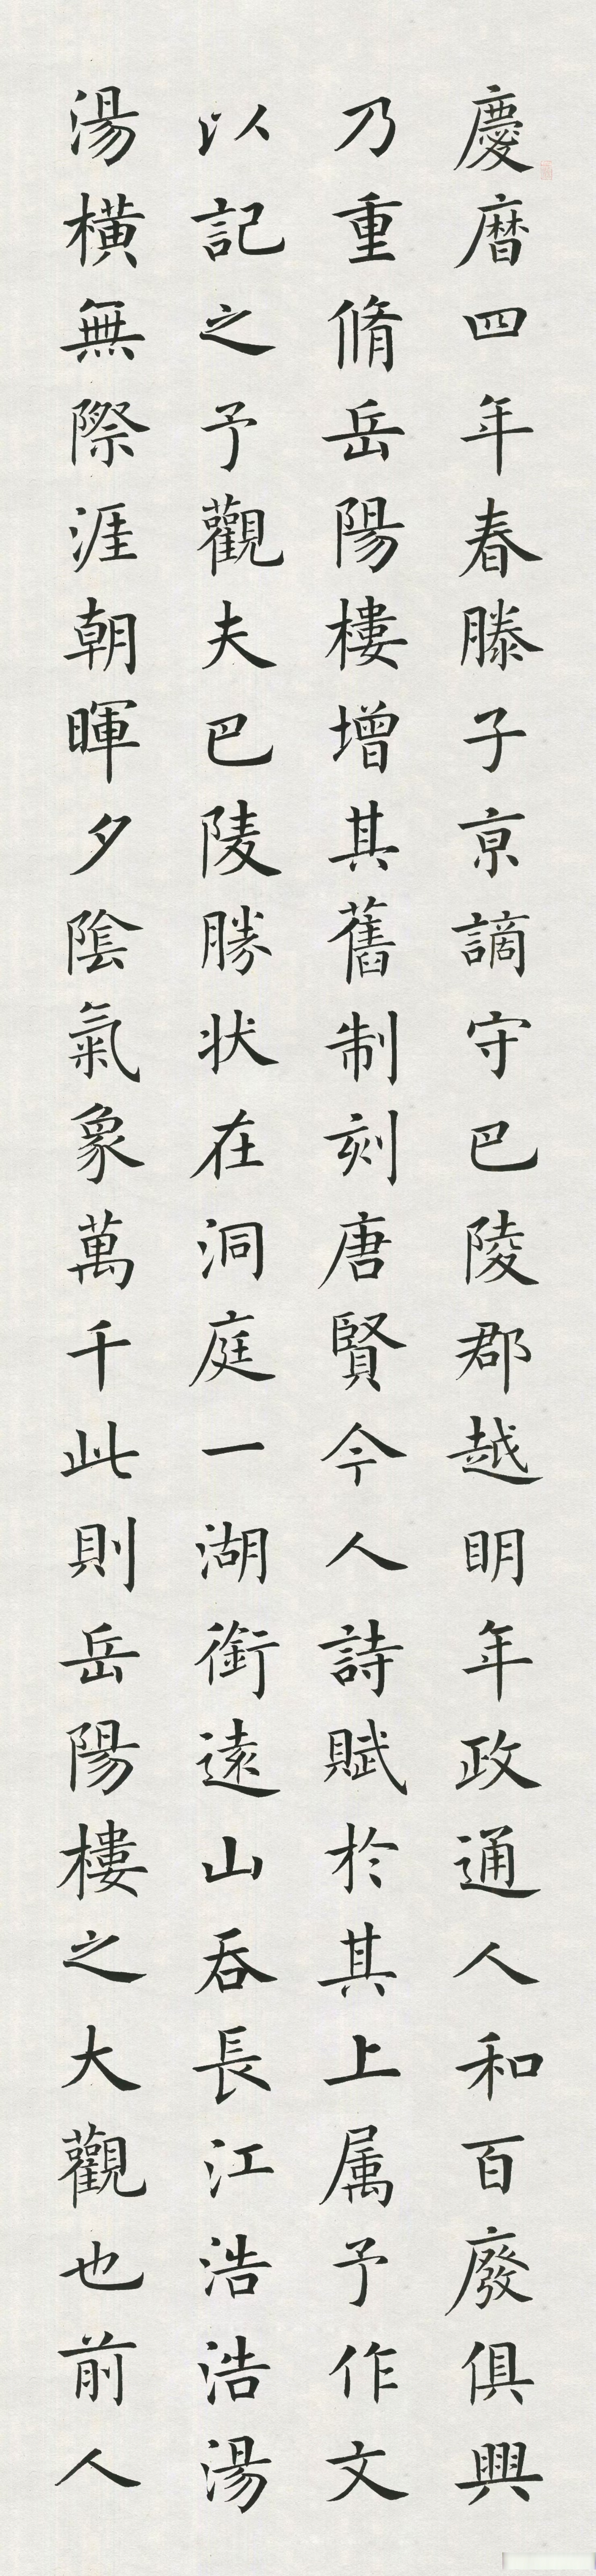 慶暦四年春滕子亰謫守巴陵郡越明年政通人和百廢俱興
乃重脩岳陽樓增其舊制刻唐賢今人詩賦於其上属予作文
以記之予觀夫巴陵勝状在洞庭一湖銜遠山吞長江浩浩湯
湯橫無際涯朝暉夕陰氣象萬千此則岳陽樓之大觀也前人